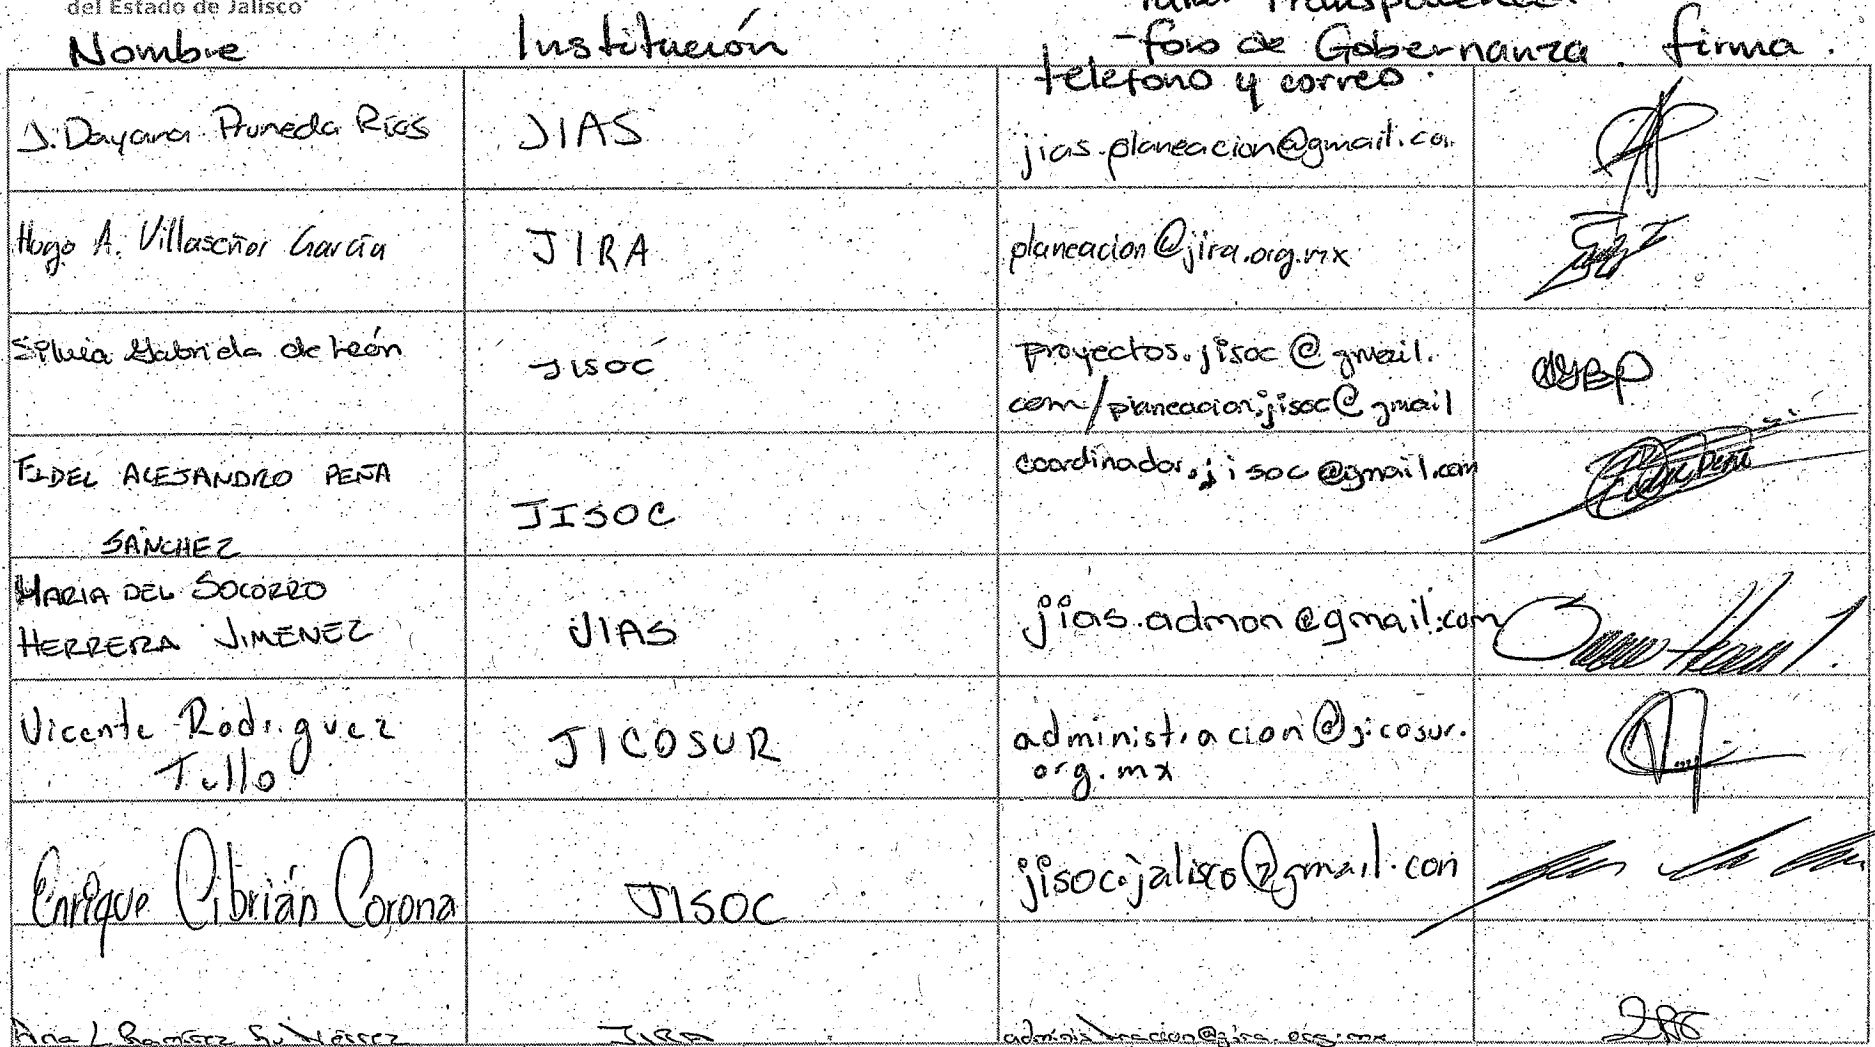 del Estado de Jalisco
Taller Transparencia
Nombre Institución -foro de Gobernanza. firma.
teléfono y correo.
J. Dayana Pruneda Rios JIAS jias.planeacion@gmail.co
Hugo A. Villaseñor García JIRA planeacion@jira.org.mx
Silvia Gabriela de León JISOC proyectos.jisoc@gmail.
com/planeacion.jisoc@gmail
FIDEL ALEJANDRO PEÑA JISOC coordinador.jisoc@gmail.com
SÁNCHEZ
MARIA DEL SOCORRO
HERRERA JIMÉNEZ JIAS jias.admon@gmail.com
Vicente Rodriguez JICOSUR administracion@jicosur.
Tello org.mx
Enrique Cibrián Corona JISOC jisoc.jalisco@gmail.com
Ana L Ramírez Gutiérrez JIRA administracion@jira.org.mx